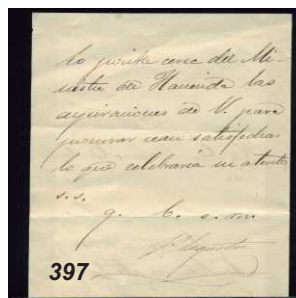 lo posible cerca del Mi-
nistro de Hacienda las
aspiraciones de V. para
procurar sean satisfechas
lo que celebraria su atento
s.s.
q. b. s. m.
397